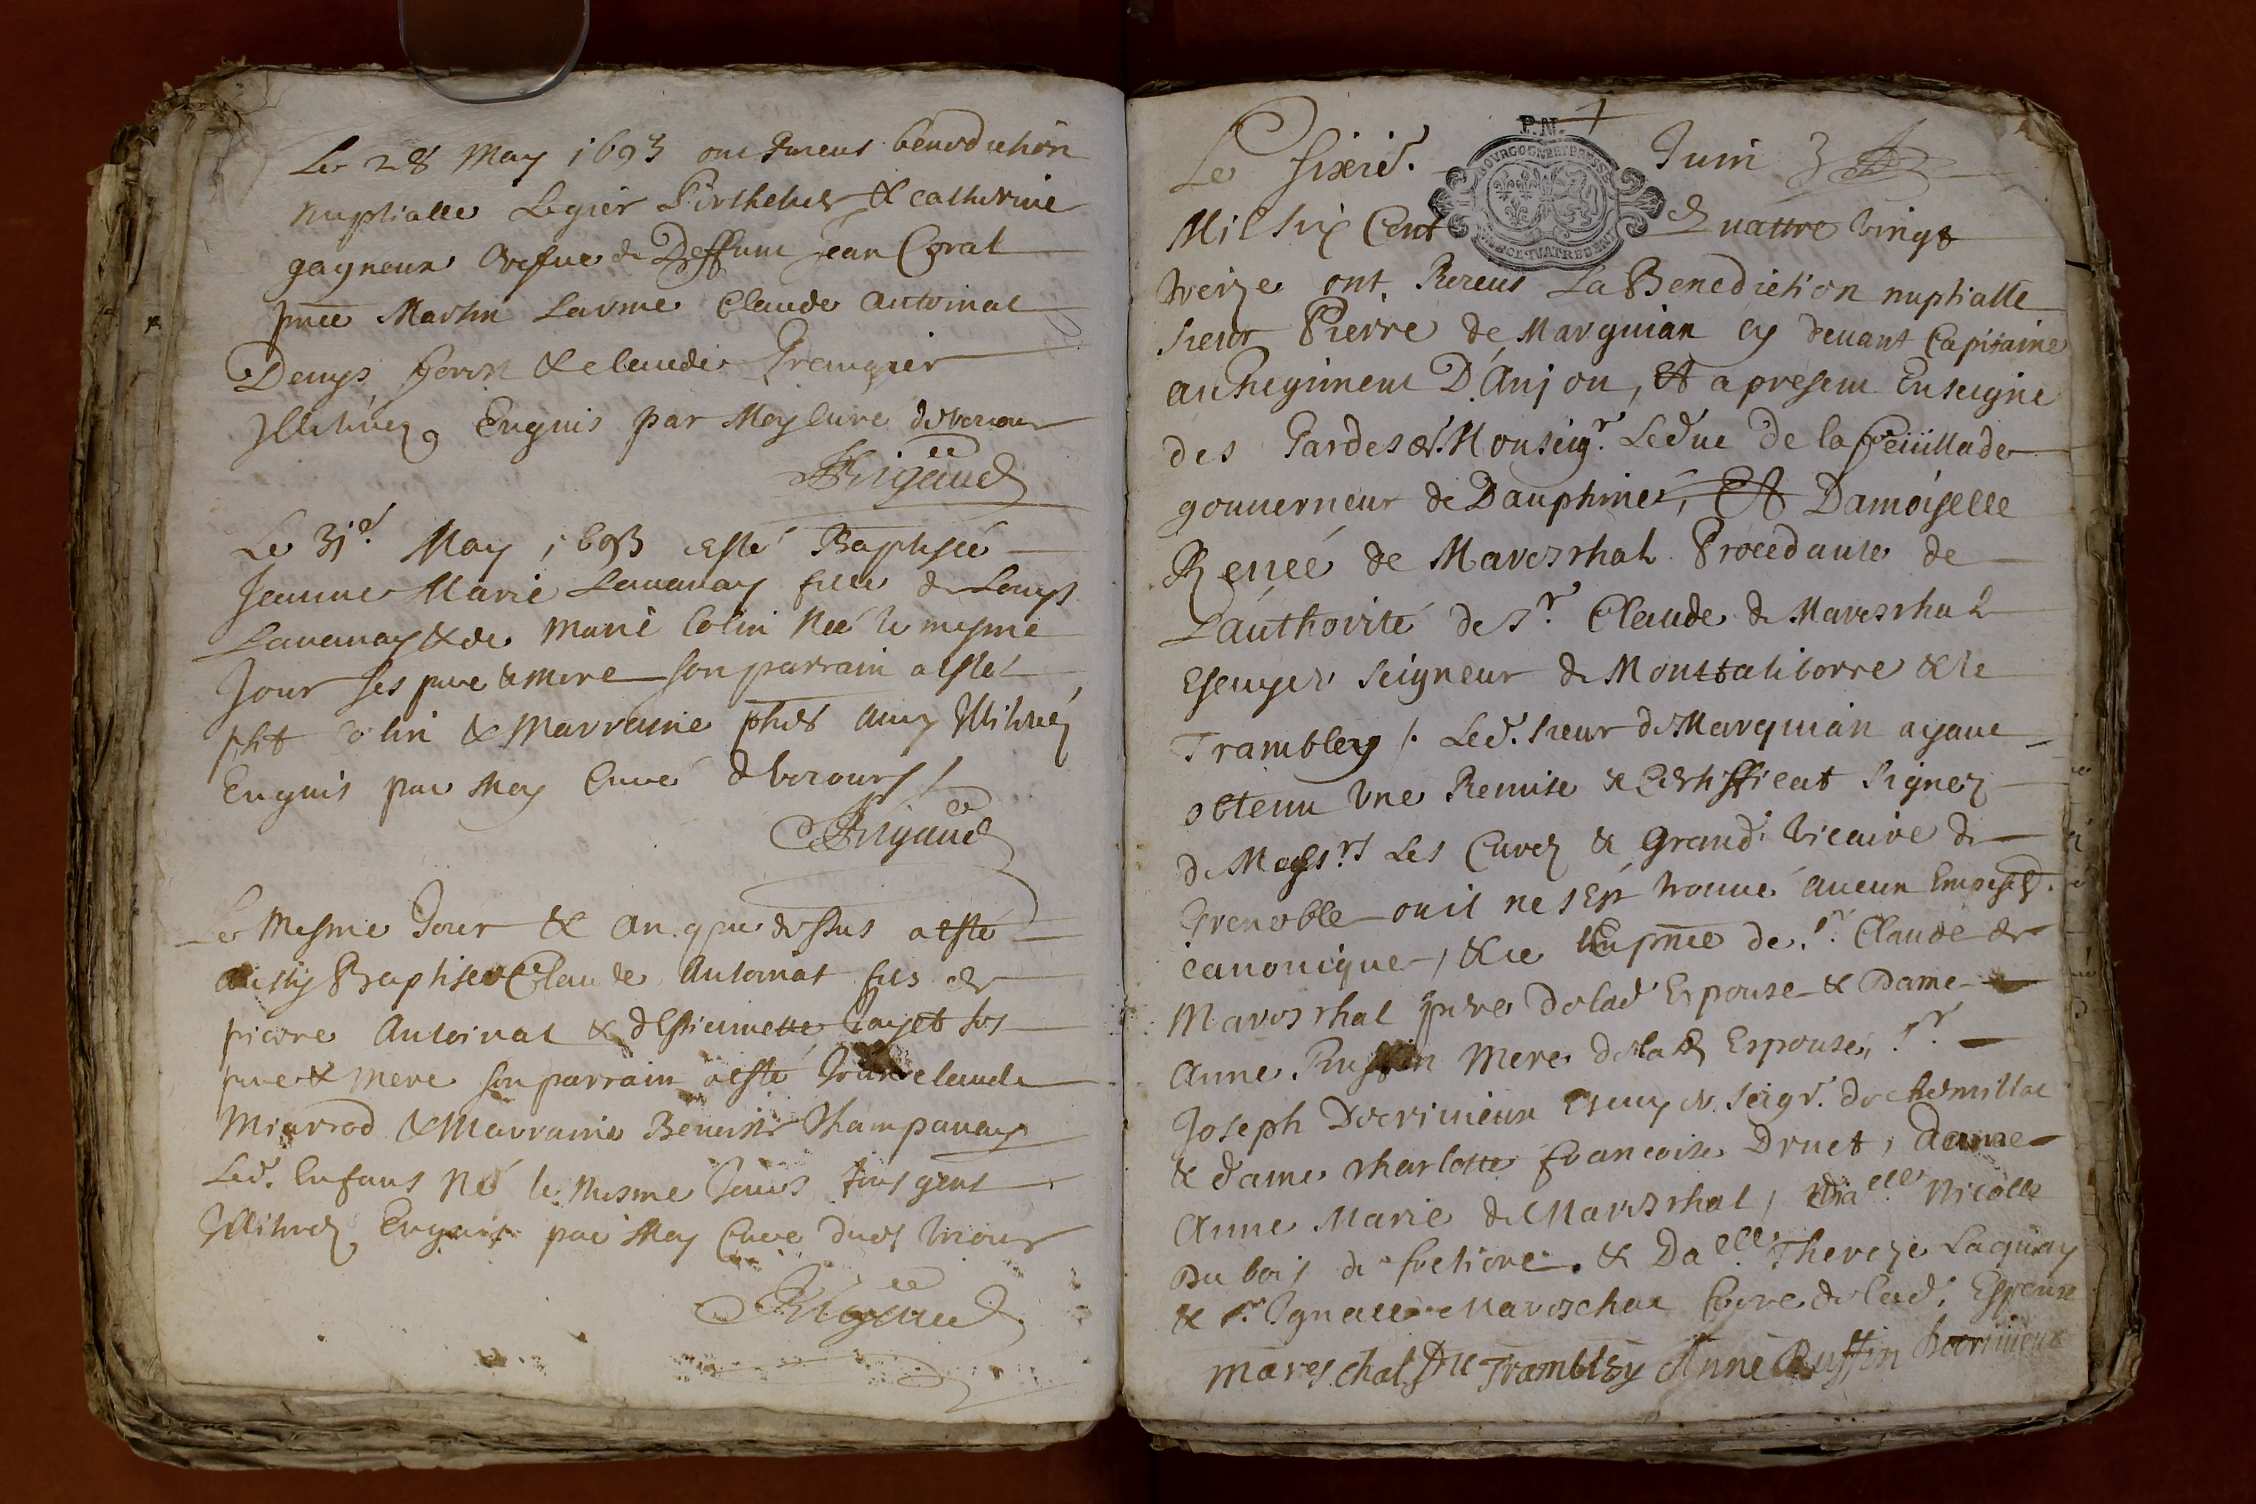 Le 28 May 1693 ont Receus benediction
nuptialle Legier Pirthelier & Catherine
gagneur Vefue de Deffunt Jean Corat
pnce Martin Larme Claude Antoinat
Denys & Claude
Illitérez Enquis par Moy Curé de
JRigaud
Le 31e. May 1693 a Esté Baptisée
Jeanne Marie Lauanay fille de Louys
Lauanay & de Marie Colin Née le mesme
Jour ses pere & mere son parrain a esté
pht Colin & Marraine Illitérez
Enquis par Moy Curé de
JRigaud
Le Mesme Jour & An que dessus a esté
aussy Baptisé Claude Antoinat fils de
pierre Antoinat & d'Estiennette Cayet ses
pere & mere son parrain a esté Claude
& Marraine Benoiste Champauay
Led. Enfant Né le mesme Jour tous gens
Illiterez Enquis par Moy Curé dud.
JRigaud
P.N.
Le sixie. Juin
BOURGOGNE ET BRESSE
Mil Six Cent Quattre Vingt
treize ont Receus La Benediction nuptialle
Sieur Pierre de Marquian cy deuant Capitaine
au Regiment D'Anjou, Et a present Enseigne
des Gardes de Monseigr. Le Duc de la feüillade
gouuerneur de Dauphiné, Et Damoiselle
Reneé de Mareschal Procedante de
L'authorité de Sr. Claude de Mareschal
Escuyer Seigneur de & le
Trambley /. Led. Sieur de Marquian ayant
obtenu Vne Remise & Certifficat Signez
de Messrs Les Curez & Grand Vicaire de
Grenoble ou il ne s'Est trouué aucun Empesch.
canonique, & ce En pnce de Sr. Claude de
Mareschal pere de lad Espouse & Dame
Anne Ruffin Mere de lad Espouse, Sr.
Joseph Escuyer Seigr. de
& dame Charlotte francoise Druet, dame
Anne Marie de Mareschal, Dalle Nicolle
Du bois de & Dalle. Thereze
& Sr. Ignace Mareschal frere de lad. Espouse
mareschal Dlle Trambley Anne Ruffin